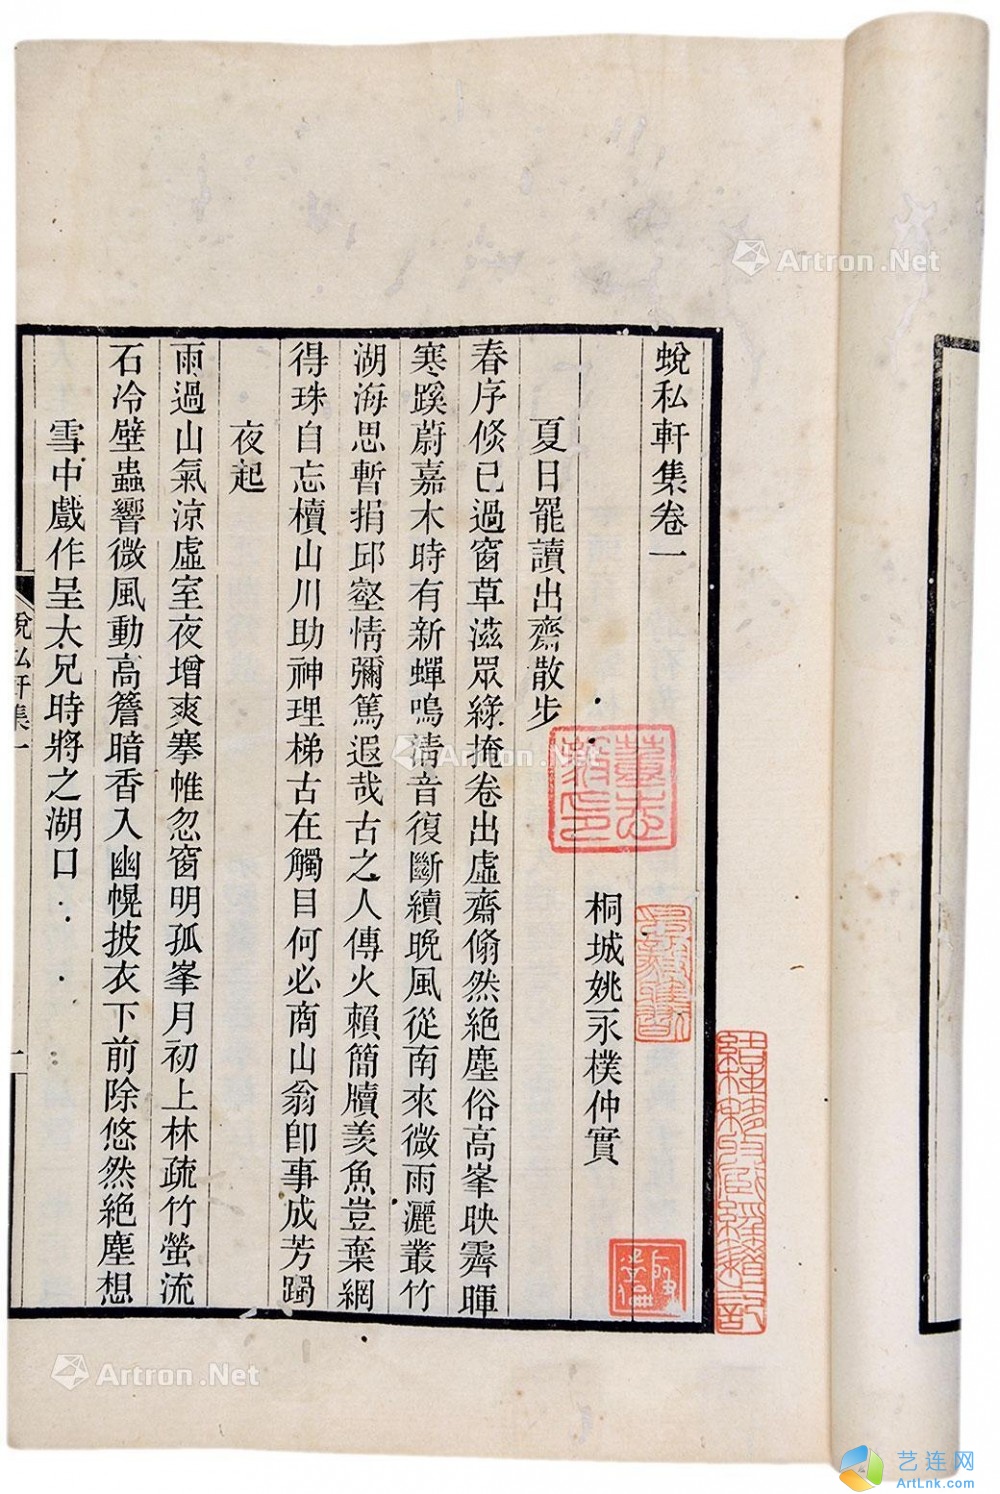 蛻私軒集卷一
桐城姚永樸仲實
夏日罷讀出齋散步
春序倏已過窗草滋眾綠掩卷出虛齋翛然絕塵俗高峯映霽暉
寒蹊蔚嘉木時有新蟬鳴清音復斷續晚風從南來微雨灑叢竹
湖海思暫捐邱壑情彌篤遐哉古之人傳火賴簡牘羡魚豈棄網
得珠自忘櫝山川助神理梯古在觸目何必商山翁卽事成芳躅
夜起
雨過山氣涼虛室夜增爽搴帷忽窗明孤峯月初上林疏竹螢流
石冷壁蟲響微風動高簷暗香入幽幌披衣下前除悠然絕塵想
雪中戲作呈大兄時將之湖口
蛻私軒集一
一
Artron.Net
Artron.Net
Artron.Net
艺连网
ArtLnk.com